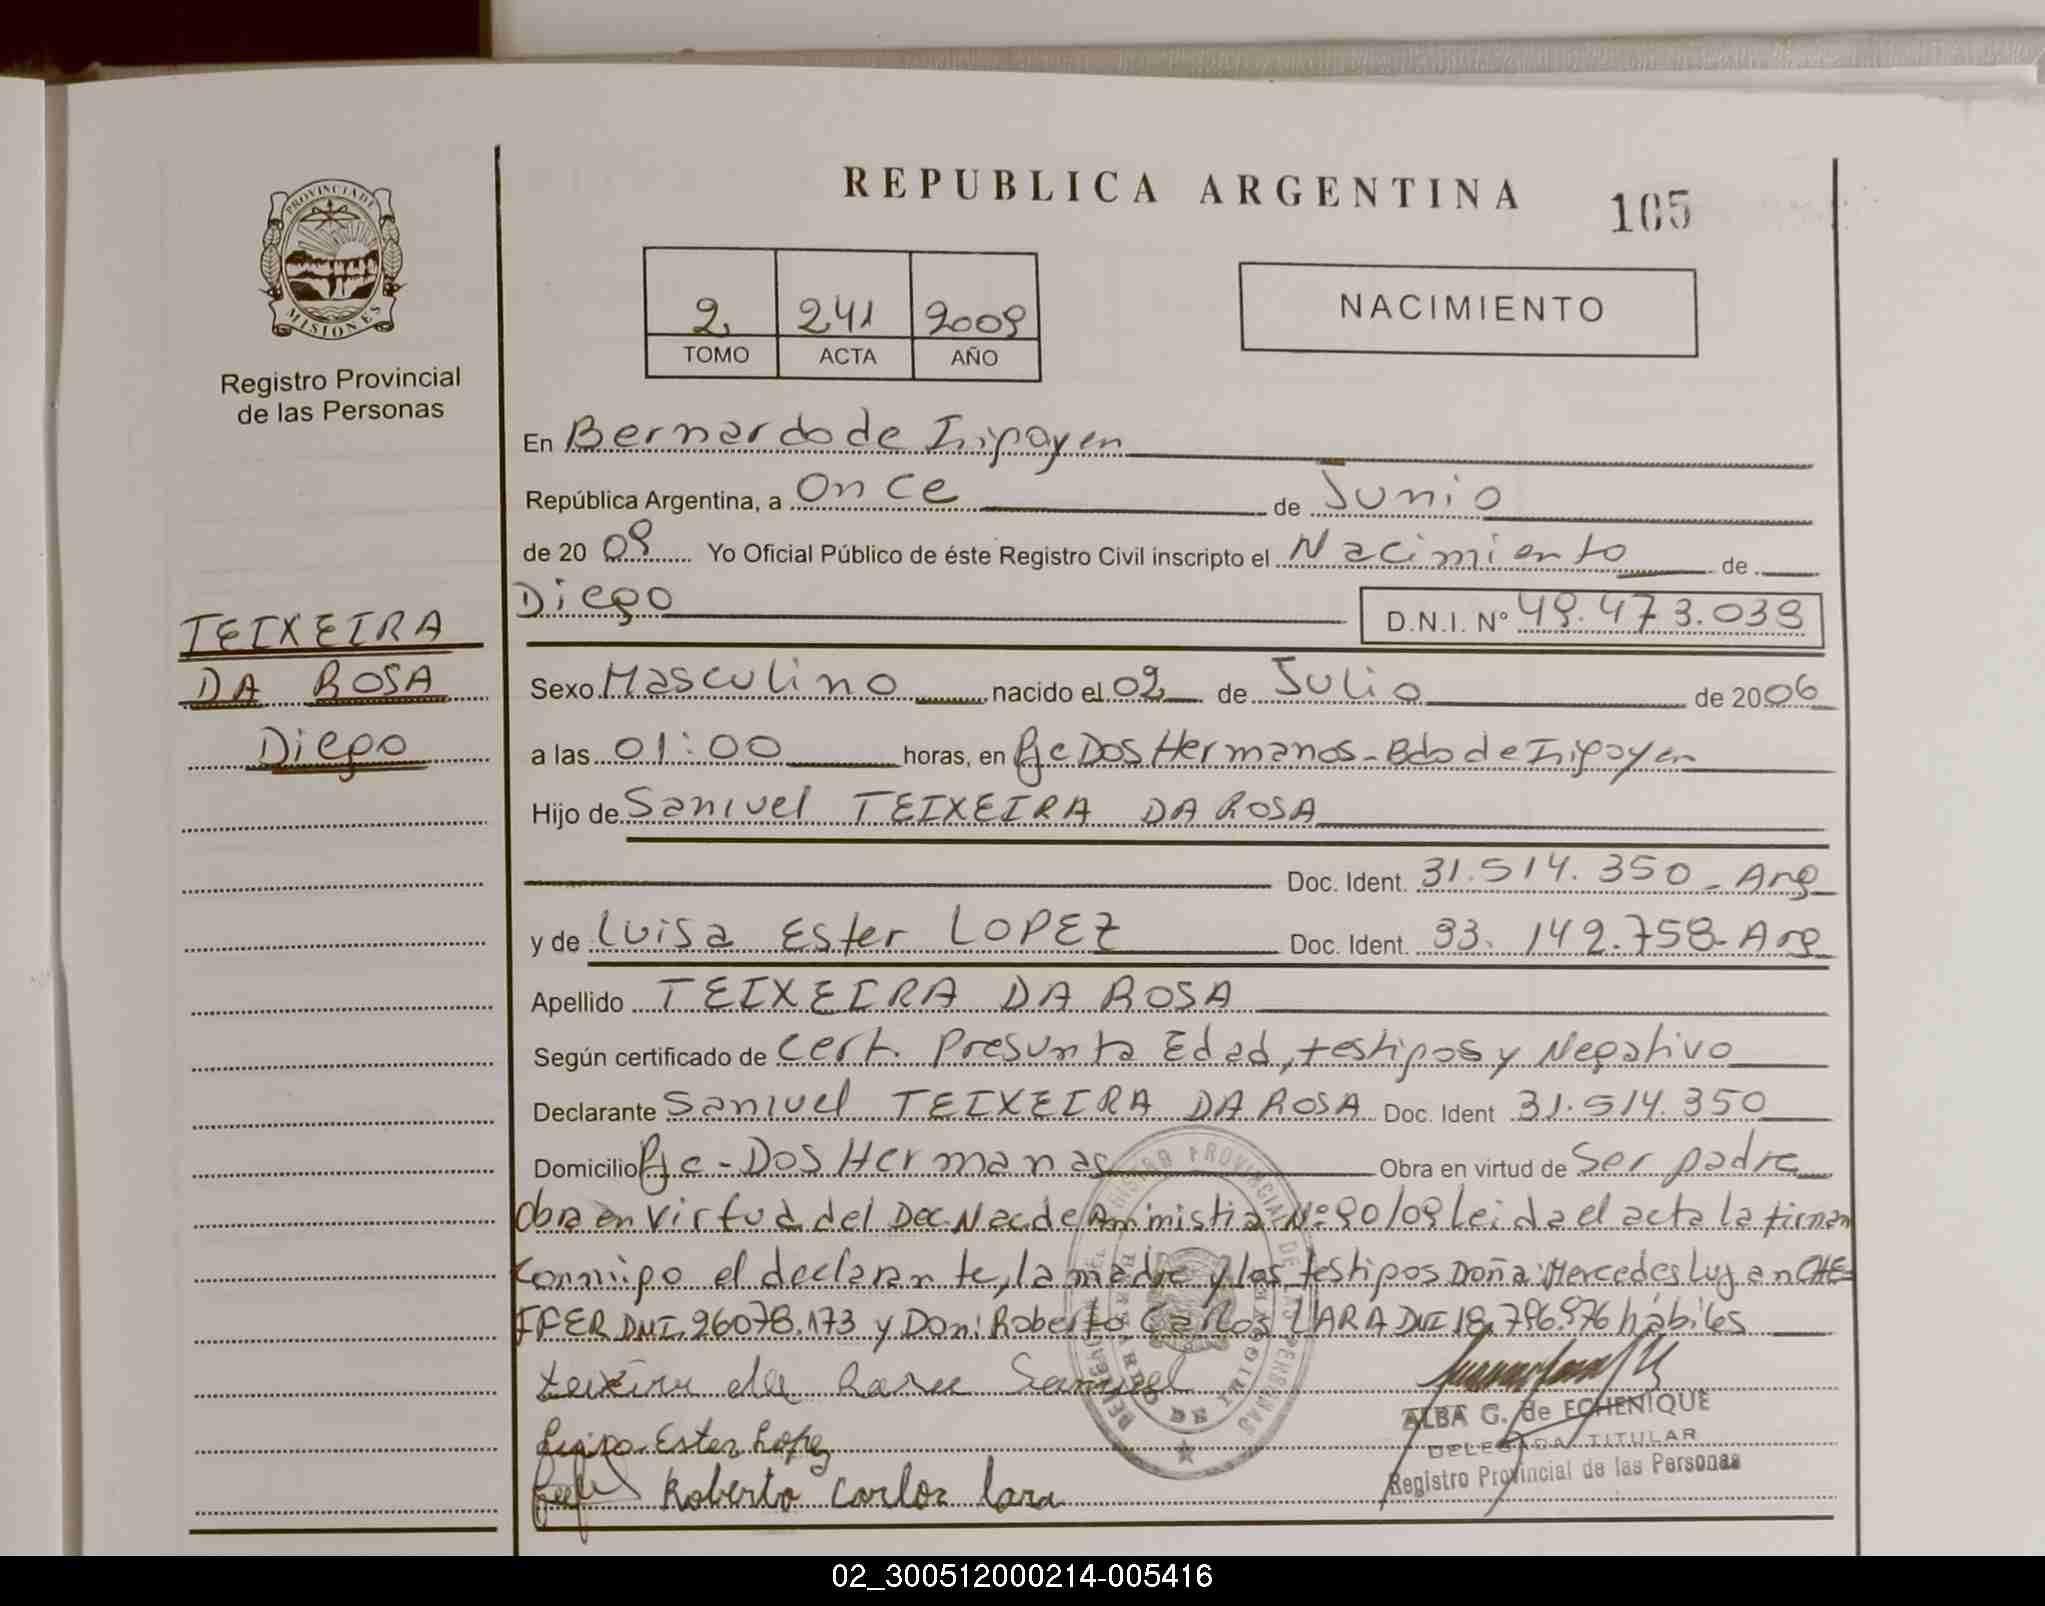 REPUBLICA ARGENTINA
105
PROVINCIA DE MISIONES
Registro Provincial
de las Personas
2 241 2009
TOMO ACTA AÑO
NACIMIENTO
En Bernardo de Irigoyen
República Argentina, a Once de Junio
de 20 09 Yo Oficial Público de éste Registro Civil inscripto el Nacimiento de
Diego D.N.I. Nº 49.473.039
TEIXEIRA
DA ROSA
Diego
Sexo Masculino nacido el 02 de Julio de 2006
a las 01:00 horas, en Pje Dos Hermanas - Bdo de Irigoyen
Hijo de Saniuel TEIXEIRA DA ROSA
Doc. Ident. 31.514.350 - Arg
y de Luisa Ester LOPEZ Doc. Ident. 33.142.758 - Arg
Apellido TEIXEIRA DA ROSA
Según certificado de Cert. Presunta Edad, testigos y Negativo
Declarante Saniuel TEIXEIRA DA ROSA Doc. Ident 31.514.350
Domicilio Pje - Dos Hermanas Obra en virtud de Ser padre
Obra en virtud del Dec. Nac de Amnistia Nº 90/09 Leida el acta la firman
conmigo el declarante, la madre y los testigos Doña: Mercedes Lujan CHE-
FFER DNI. 26078.173 y Don: Roberto Carlos LARA DNI 18.796.976 hábiles
teixeira da Rosa Saniuel
Luisa Ester Lopez
Roberto Carlos Lara
ALBA G. de ECHENIQUE
DELEGADA TITULAR
Registro Provincial de las Personas
02_300512000214-005416